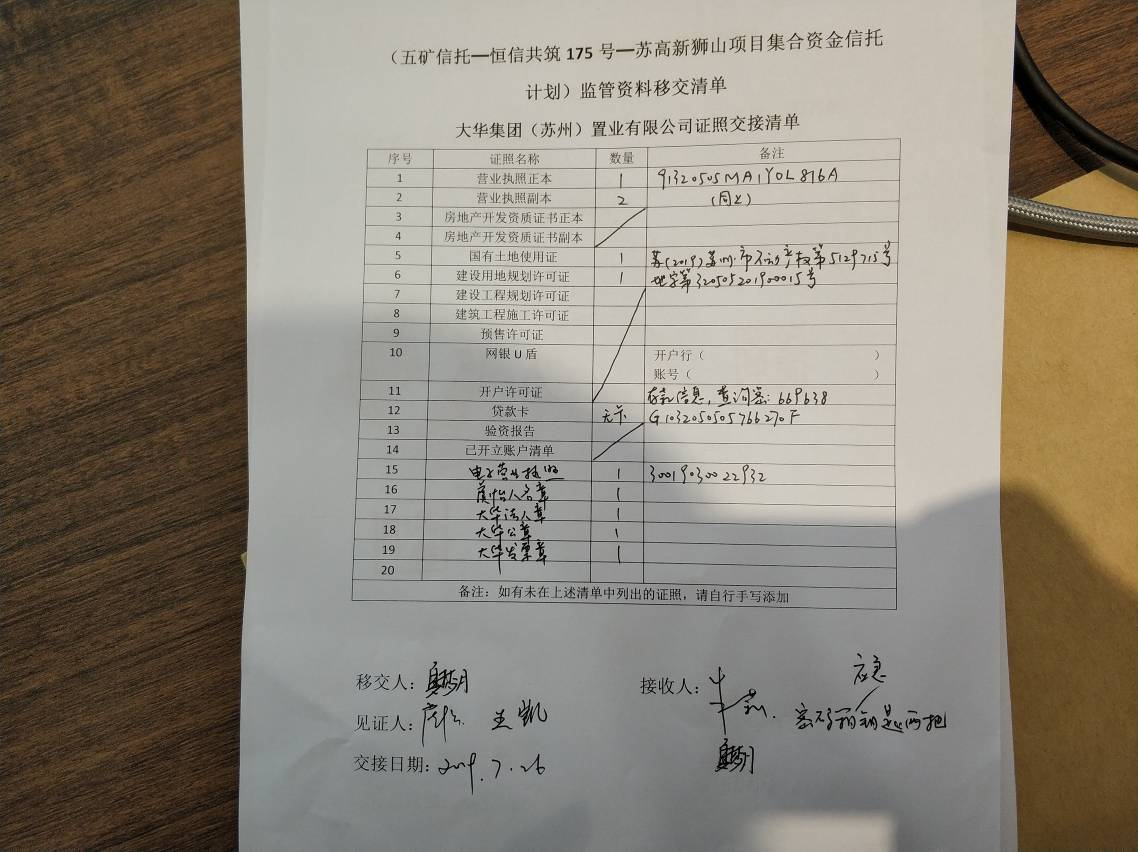 （五矿信托—恒信共筑 175 号—苏高新狮山项目集合资金信托
计划）监管资料移交清单
大华集团（苏州）置业有限公司证照交接清单
序号 证照名称 数量 备注
1 营业执照正本 1 91320505MA1Y0L816A
2 营业执照副本 2 （同上）
3 房地产开发资质证书正本
4 房地产开发资质证书副本
5 国有土地使用证 1 苏(2019)苏州市不动产权第5129715号
6 建设用地规划许可证 1 地字第320505201900015号
7 建设工程规划许可证
8 建筑工程施工许可证
9 预售许可证
10 网银 U 盾 开户行（ ）
账号（ ）
11 开户许可证 存款信息，查询密：669638
12 贷款卡 无卡 G1032050505766270F
13 验资报告
14 已开立账户清单
15 电子营业执照 1 30019030022932
16 人名章 1
17 大华法人章 1
18 大华公章 1
19 大华发票章 1
20
备注：如有未在上述清单中列出的证照，请自行手写添加
移交人： 接收人： 应急
见证人： 王凯 密码 钥匙两把
交接日期：2019.7.26